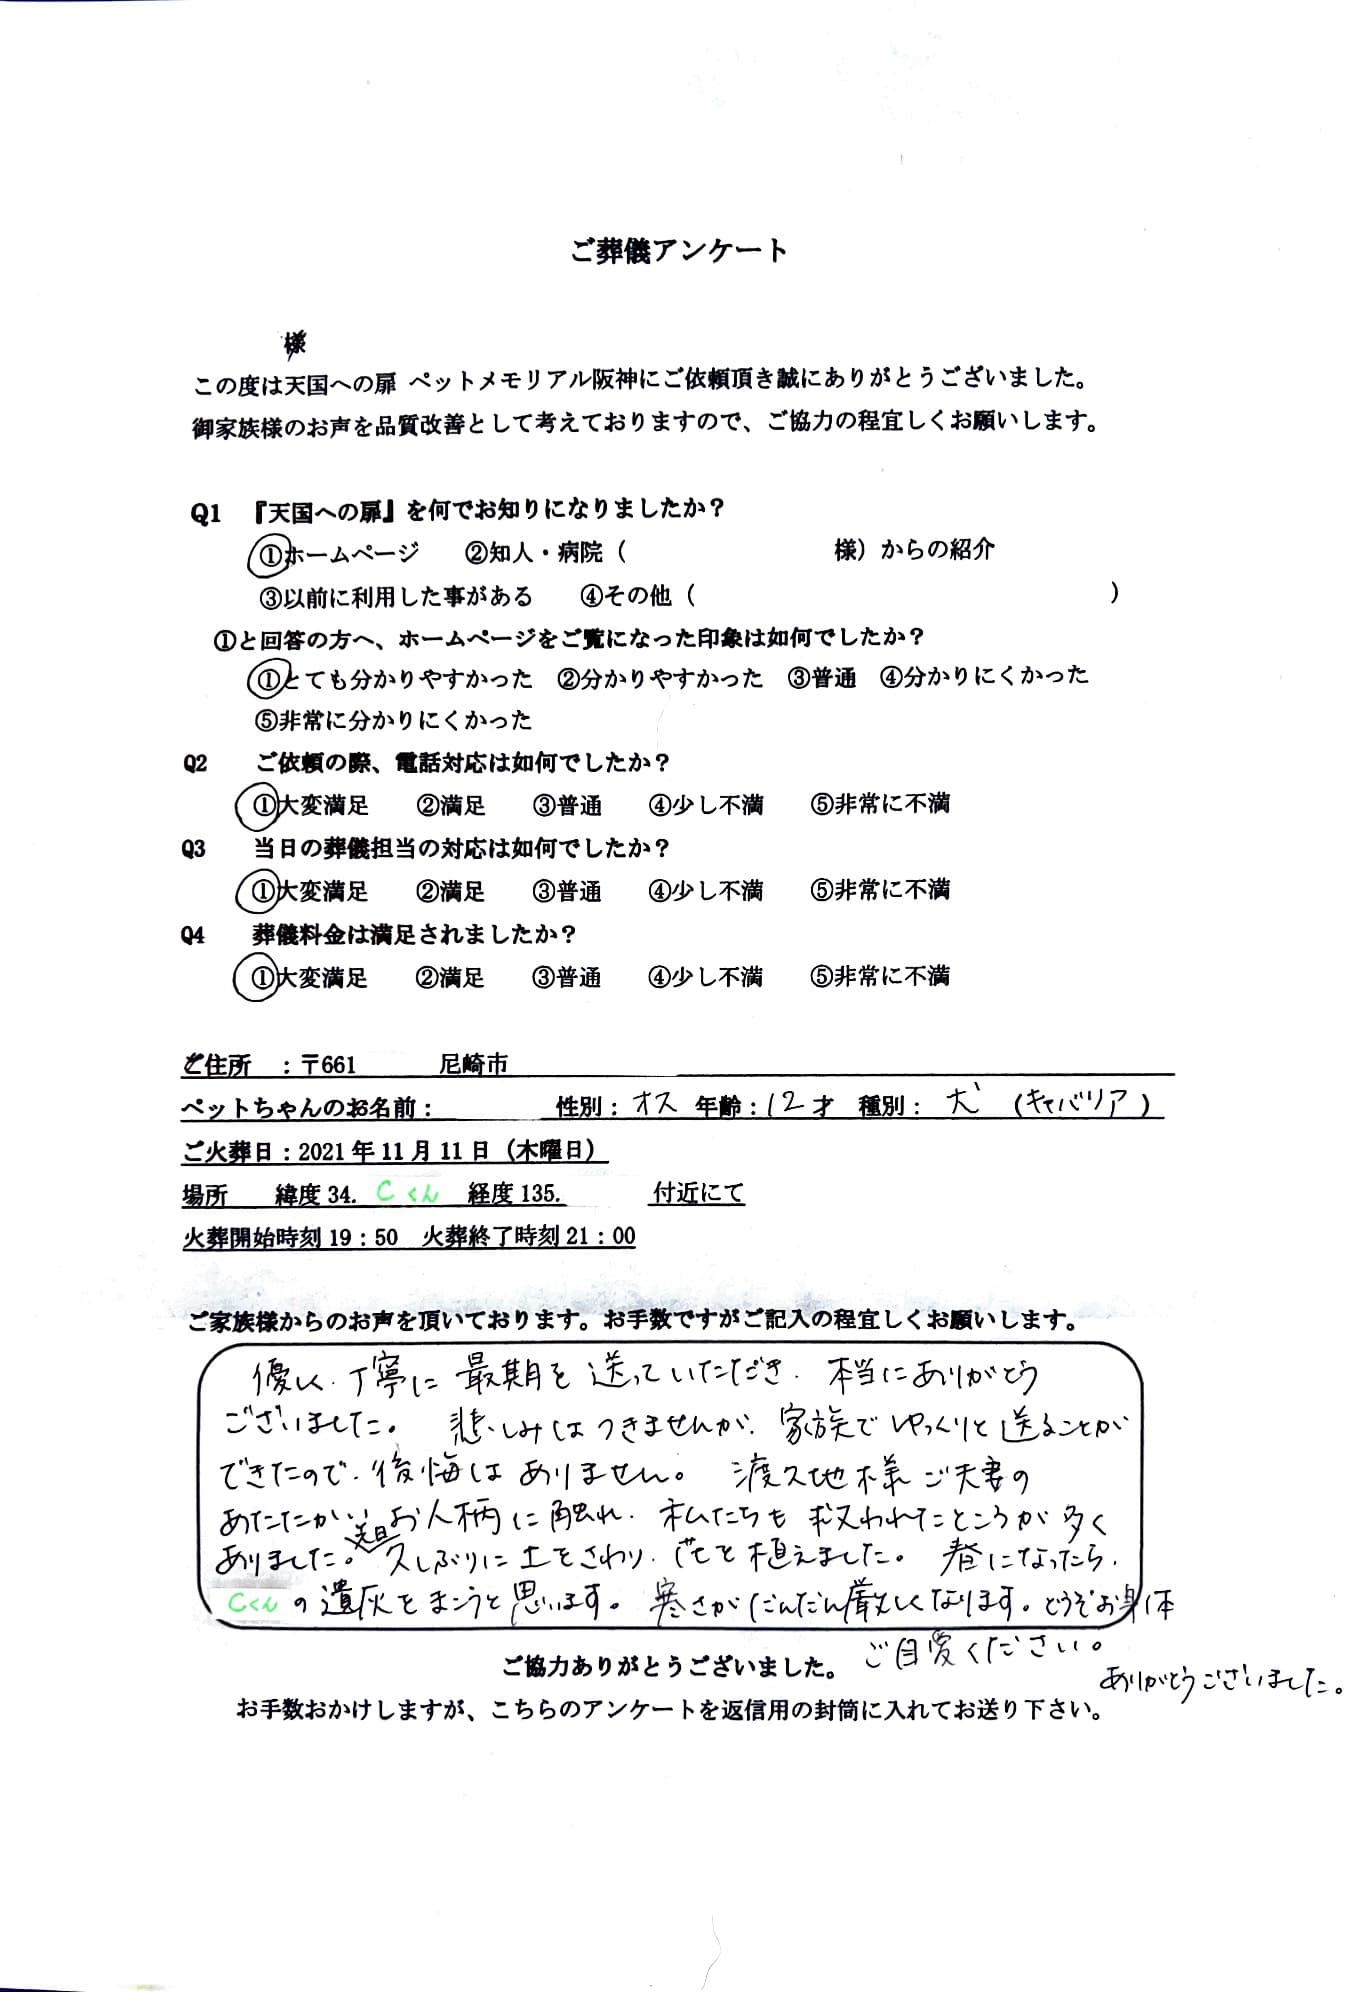 ご葬儀アンケート
様
この度は天国への扉 ペットメモリアル阪神にご依頼頂き誠にありがとうございました。
御家族様のお声を品質改善として考えておりますので、ご協力の程宜しくお願いします。
Q1 『天国への扉』を何でお知りになりましたか？
①ホームページ ②知人・病院（ 様）からの紹介
③以前に利用した事がある ④その他（ ）
①と回答の方へ、ホームページをご覧になった印象は如何でしたか？
①とても分かりやすかった ②分かりやすかった ③普通 ④分かりにくかった
⑤非常に分かりにくかった
Q2 ご依頼の際、電話対応は如何でしたか？
①大変満足 ②満足 ③普通 ④少し不満 ⑤非常に不満
Q3 当日の葬儀担当の対応は如何でしたか？
①大変満足 ②満足 ③普通 ④少し不満 ⑤非常に不満
Q4 葬儀料金は満足されましたか？
①大変満足 ②満足 ③普通 ④少し不満 ⑤非常に不満
ご住所 ：〒661 尼崎市
ペットちゃんのお名前： 性別：オス 年齢：12才 種別：犬 （キャバリア）
ご火葬日：2021年11月11日（木曜日）
場所 緯度34. Cくん 経度135. 付近にて
火葬開始時刻19：50 火葬終了時刻21：00
ご家族様からのお声を頂いております。お手数ですがご記入の程宜しくお願いします。
優しく、丁寧に最期を送っていただき、本当にありがとう
ございました。 悲しみはつきませんが、家族でゆっくりと送ることが
できたので、後悔はありません。 渡久地様ご夫妻の
あたたかいお人柄に触れ、私たちも救われたところが多く
ありました。先日久しぶりに土をさわり、花を植えました。 春になったら、
Cくんの遺灰をまこうと思います。 寒さがだんだん厳しくなります。どうぞお身体
ご自愛ください。
ありがとうございました。
ご協力ありがとうございました。
お手数おかけしますが、こちらのアンケートを返信用の封筒に入れてお送り下さい。